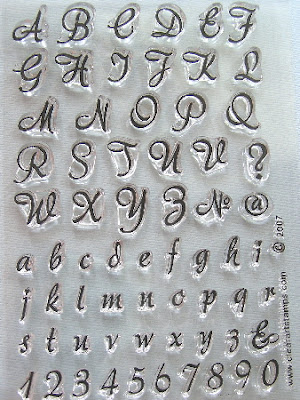 A B C D E F
G H I J K L
M N O P Q
R S T U V ?
W X Y Z № @
a b c d e f g h i
j k l m n o p q r
s t u v w x y z &
1 2 3 4 5 6 7 8 9 0
www.clearartstamps.com © 2007